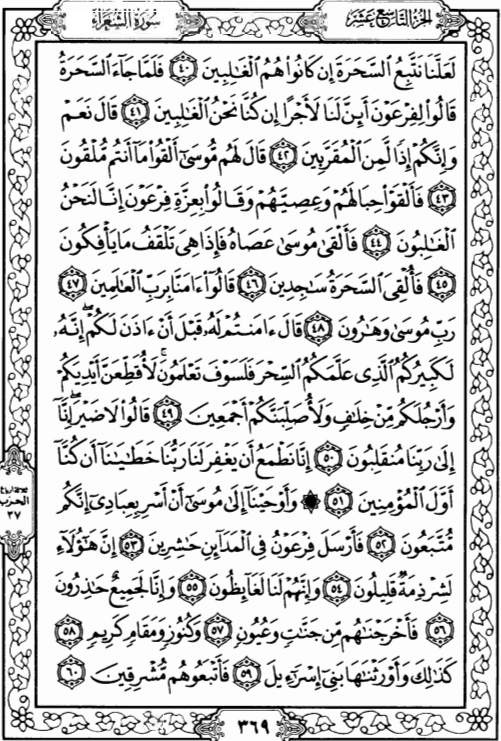 الجزء التاسع عشر
سورة الشعراء
لَعَلَّنَا نَتَّبِعُ ٱلسَّحَرَةَ إِن كَانُوا۟ هُمُ ٱلْغَٰلِبِينَ ٤٠ فَلَمَّا جَآءَ ٱلسَّحَرَةُ
قَالُوا۟ لِفِرْعَوْنَ أَئِنَّ لَنَا لَأَجْرًا إِن كُنَّا نَحْنُ ٱلْغَٰلِبِينَ ٤١ قَالَ نَعَمْ
وَإِنَّكُمْ إِذًا لَّمِنَ ٱلْمُقَرَّبِينَ ٤٢ قَالَ لَهُم مُّوسَىٰٓ أَلْقُوا۟ مَآ أَنتُم مُّلْقُونَ
٤٣ فَأَلْقَوْا۟ حِبَالَهُمْ وَعِصِيَّهُمْ وَقَالُوا۟ بِعِزَّةِ فِرْعَوْنَ إِنَّا لَنَحْنُ
ٱلْغَٰلِبُونَ ٤٤ فَأَلْقَىٰ مُوسَىٰ عَصَاهُ فَإِذَا هِىَ تَلْقَفُ مَا يَأْفِكُونَ
٤٥ فَأُلْقِىَ ٱلسَّحَرَةُ سَٰجِدِينَ ٤٦ قَالُوٓا۟ ءَامَنَّا بِرَبِّ ٱلْعَٰلَمِينَ ٤٧
رَبِّ مُوسَىٰ وَهَٰرُونَ ٤٨ قَالَ ءَامَنتُمْ لَهُۥ قَبْلَ أَنْ ءَاذَنَ لَكُمْ ۖ إِنَّهُۥ
لَكَبِيرُكُمُ ٱلَّذِى عَلَّمَكُمُ ٱلسِّحْرَ فَلَسَوْفَ تَعْلَمُونَ ۚ لَأُقَطِّعَنَّ أَيْدِيَكُمْ
وَأَرْجُلَكُم مِّنْ خِلَٰفٍ وَلَأُصَلِّبَنَّكُمْ أَجْمَعِينَ ٤٩ قَالُوا۟ لَا ضَيْرَ ۖ إِنَّآ
إِلَىٰ رَبِّنَا مُنقَلِبُونَ ٥٠ إِنَّا نَطْمَعُ أَن يَغْفِرَ لَنَا رَبُّنَا خَطَٰيَٰنَآ أَن كُنَّآ
أَوَّلَ ٱلْمُؤْمِنِينَ ٥١ ۞ وَأَوْحَيْنَآ إِلَىٰ مُوسَىٰٓ أَنْ أَسْرِ بِعِبَادِىٓ إِنَّكُم
مُّتَّبَعُونَ ٥٢ فَأَرْسَلَ فِرْعَوْنُ فِى ٱلْمَدَآئِنِ حَٰشِرِينَ ٥٣ إِنَّ هَٰٓؤُلَآءِ
لَشِرْذِمَةٌ قَلِيلُونَ ٥٤ وَإِنَّهُمْ لَنَا لَغَآئِظُونَ ٥٥ وَإِنَّا لَجَمِيعٌ حَٰذِرُونَ
٥٦ فَأَخْرَجْنَٰهُم مِّن جَنَّٰتٍ وَعُيُونٍ ٥٧ وَكُنُوزٍ وَمَقَامٍ كَرِيمٍ ٥٨
كَذَٰلِكَ وَأَوْرَثْنَٰهَا بَنِىٓ إِسْرَٰٓءِيلَ ٥٩ فَأَتْبَعُوهُم مُّشْرِقِينَ ٦٠
الحزب
٣٧
٣٦٩